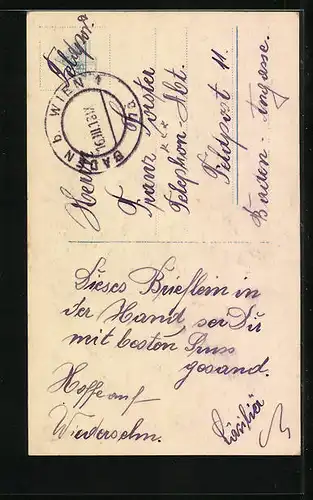 Feldpost
BADEN b. WIEN 1
16.III.18.X
Herrn
Franz Forster
Telephon-Abt.
Feldpost 11.
Baden -
Dieses Brieflein in
der Hand, sei Dir
mit besten Gruss
gesand.
Hoffe auf
Wiedersehn.
Cäcilia